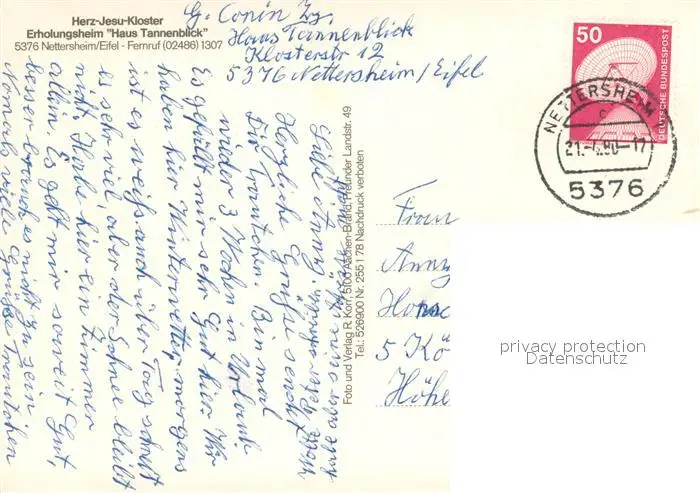 Herz-Jesu-Kloster
Erholungsheim "Haus Tannenblick"
5376 Nettersheim/Eifel - Fernruf (02486) 1307
G. Conin Zz.
Haus Tannenblick
Klosterstr 12
5376 Nettersheim/Eifel
50
DEUTSCHE BUNDESPOST
NETTERSHEIM
c
21.-4.80-17
5376
Liebe Änny.
Herzliche Grüße sendet
Dir Trautchen. Bin mal
wieder 3 Wochen in Urlaub
Es gefällt mir sehr Gut hier. Wir
haben hier Winterwetter, morgens
ist es weiß, auch über Tag schneit
es sehr viel, aber der Schnee bleibt
nicht. Habe hier ein Zimmer
allein. Es geht mir soweit Gut,
besser brauch es nicht zu sein
Nochmals viele Grüße Trautchen
habe aber seine
Foto und Verlag R. Korr, 5100 Aachen-Brand, Freunder Landstr. 49
Tel.: 526900 Nr. 255 1 78 Nachdruck verboten
Frau
Änny
5 Kö
Höhe
privacy protection
Datenschutz